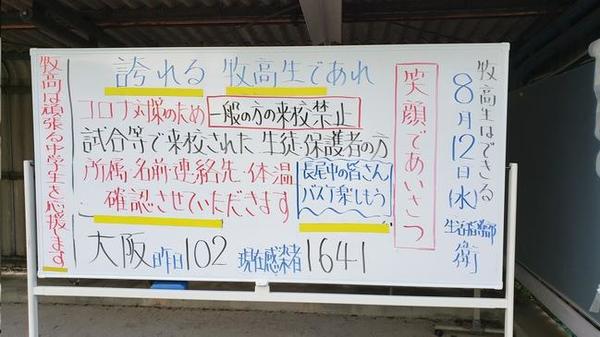 牧高生はできる
8月12日(水)
生活指導部
衛
笑顔であいさつ
誇れる 牧高生であれ
コロナ対策のため 一般の方の来校禁止
試合等で来校された 生徒・保護者の方
所属・名前・連絡先・体温
確認させていただきます
長尾中の皆さん
バスケ楽しもう
大阪 昨日102 現在感染者1641
牧高は頑張る中学生を応援します